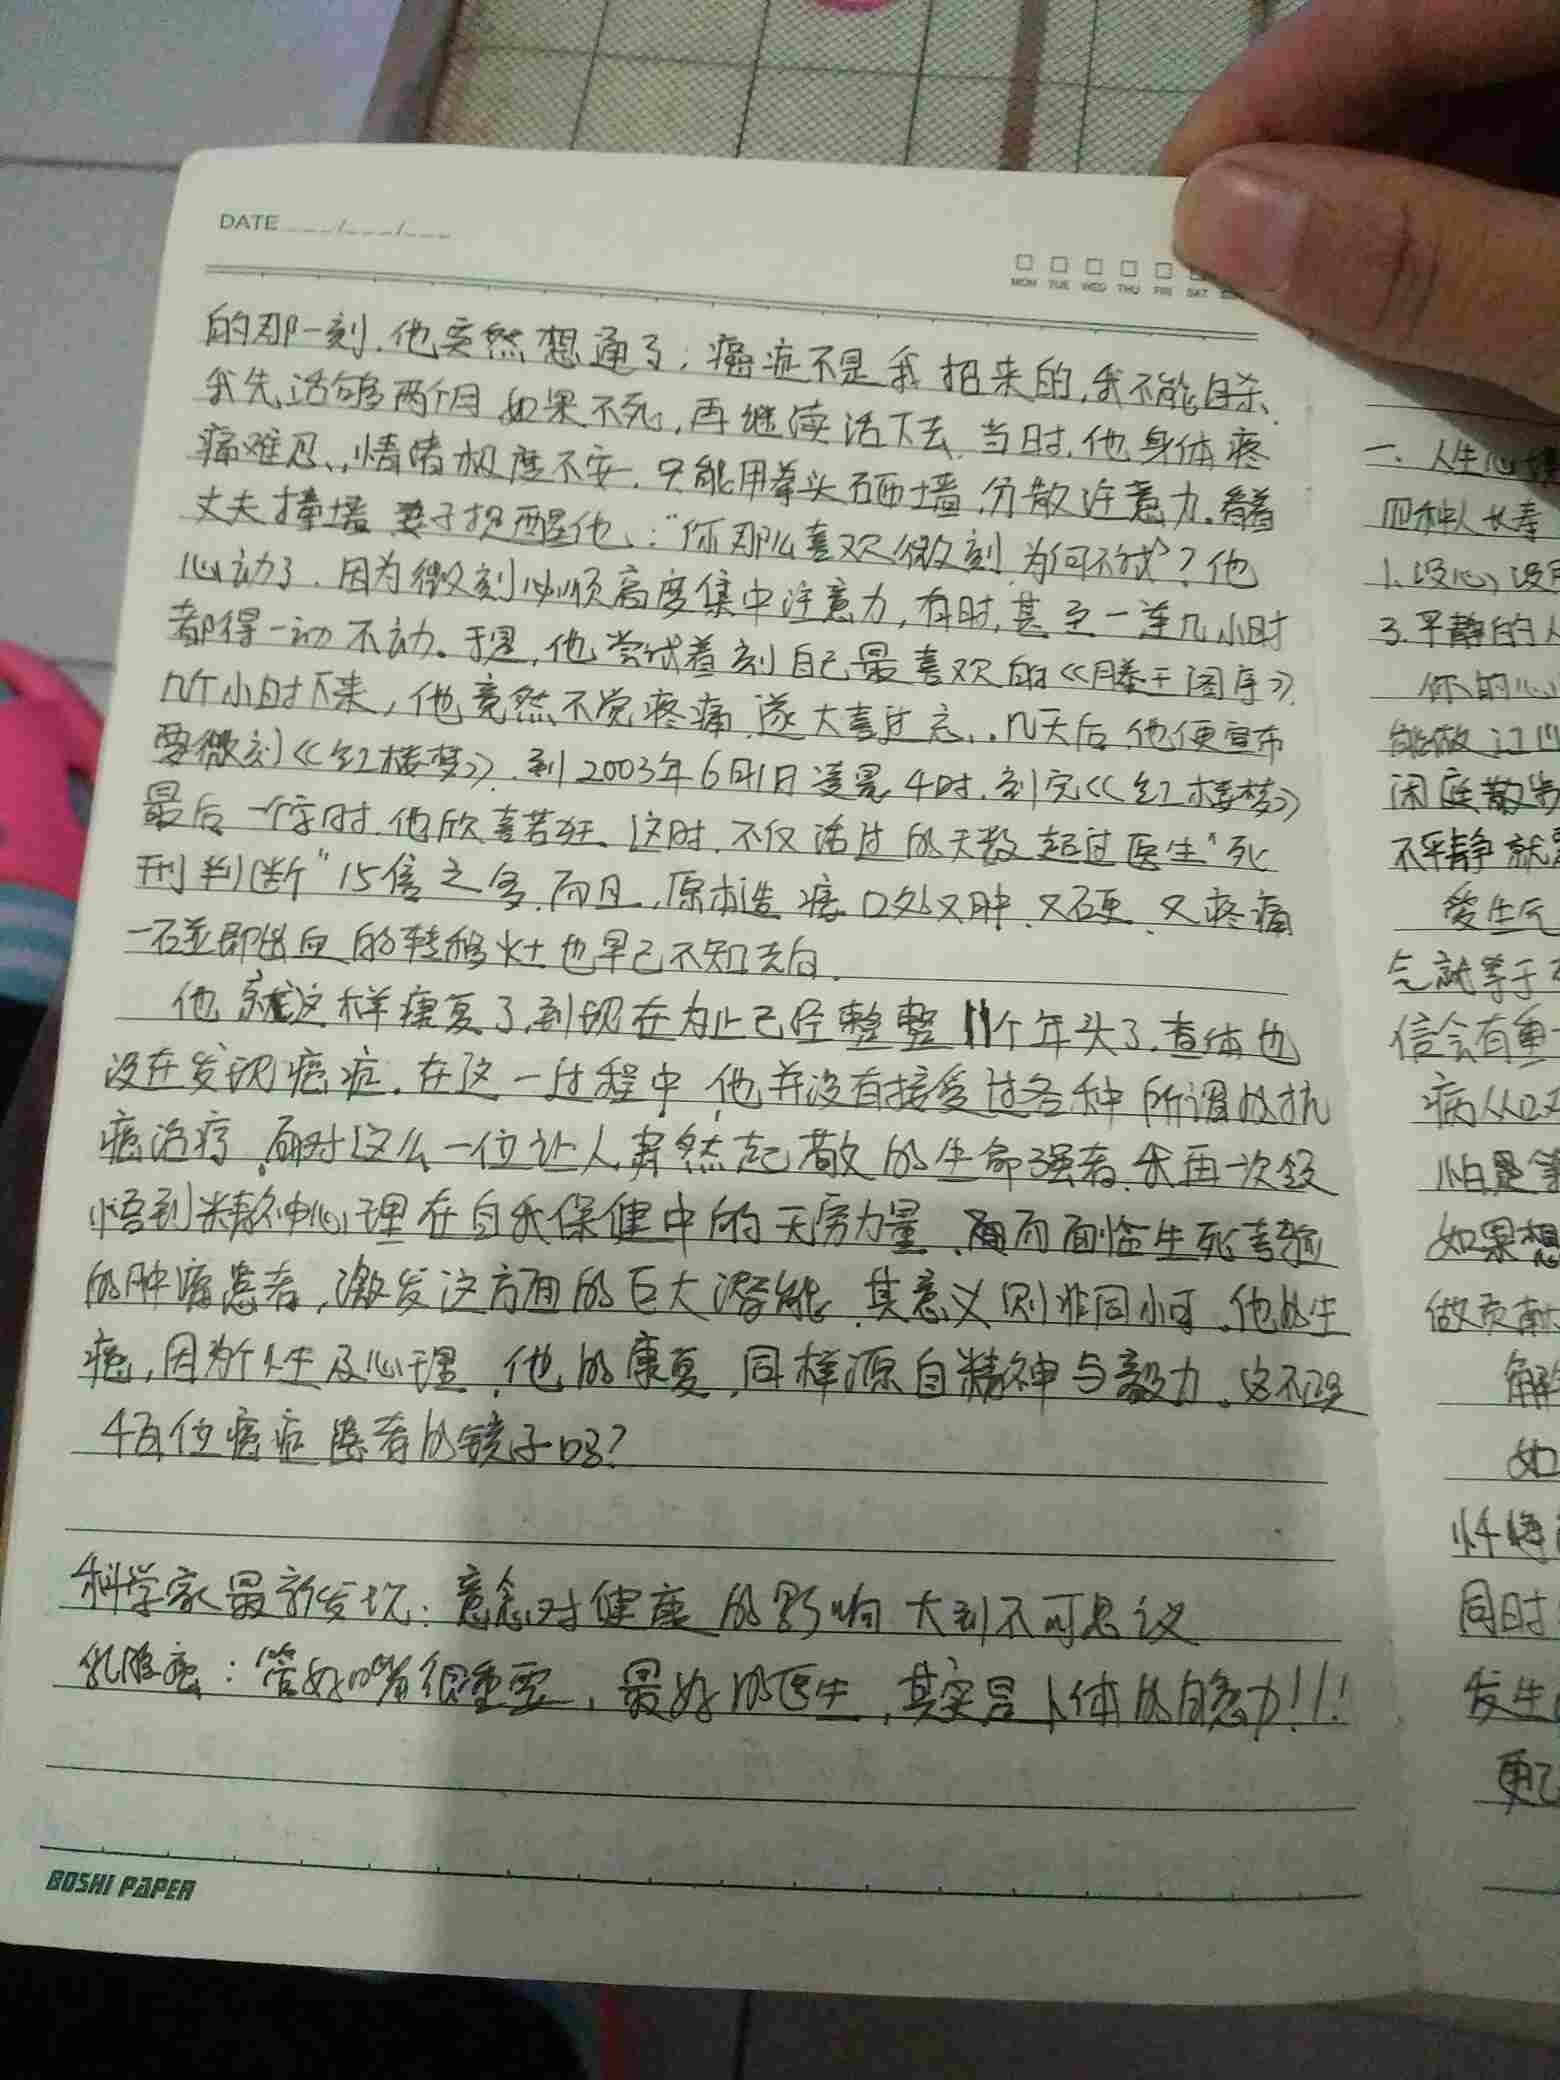 DATE
MON TUE WED THU FRI SAT
的那一刻,他突然想通了:癌症不是我招来的,我不能自杀、
我先活够两个月 如果不死,再继续活下去.当时,他身体疼
痛难忍、,情绪极度不安.只能用拳头砸墙,分散注意力。看着
丈夫撞墙 妻子提醒他、:“你那么喜欢微刻,为何不试?他
心动了.因为微刻必须高度集中注意力,有时,甚至一连几小时
都得一动不动。于是,他尝试着刻自己最喜欢的《滕王阁序》.
几个小时下来,他竟然不觉疼痛.遂大喜过忘、.几天后.他便宣布
要微刻《红楼梦》.到2003年6月1日凌晨4时.刻完《红楼梦》
最后一个字时.他欣喜若狂。这时.不仅活过的天数超过医生“死
刑判断”15倍之多.而且,原本造瘘口处又肿.又硬.又疼痛
一碰即出血的转移灶也早已不知去向.
他就这样康复了,到现在为止已经整整11个年头了.查体也
没在发现癌症.在这一过程中,他并没有接受过各种所谓的抗
癌治疗.面对这么一位让人肃然起敬的生命强者.我再一次领
悟到精神心理在自我保健中的无穷力量.而面临生死考验
的肿瘤患者,激发这方面的巨大潜能.其意义则非同小可.他的生
癌,因为个性及心理.他的康复,同样源自精神与毅力。这不足
每位癌症患者的镜子吗?
科学家最新发现:意念对健康的影响大到不可思议
乳腺癌:管好嘴很重要,最好的医生,其实是人体的自愈力!!!
BOSHI PAPER
一.人生心
四种人长寿
1.没心,没
3.平静的人
你的心
能做
闲庭散步
不平静就
爱生气
气就等于
信会有重
病从口
怕是等
如果想
做贡献
解
如
忏悔
同时
发生
更